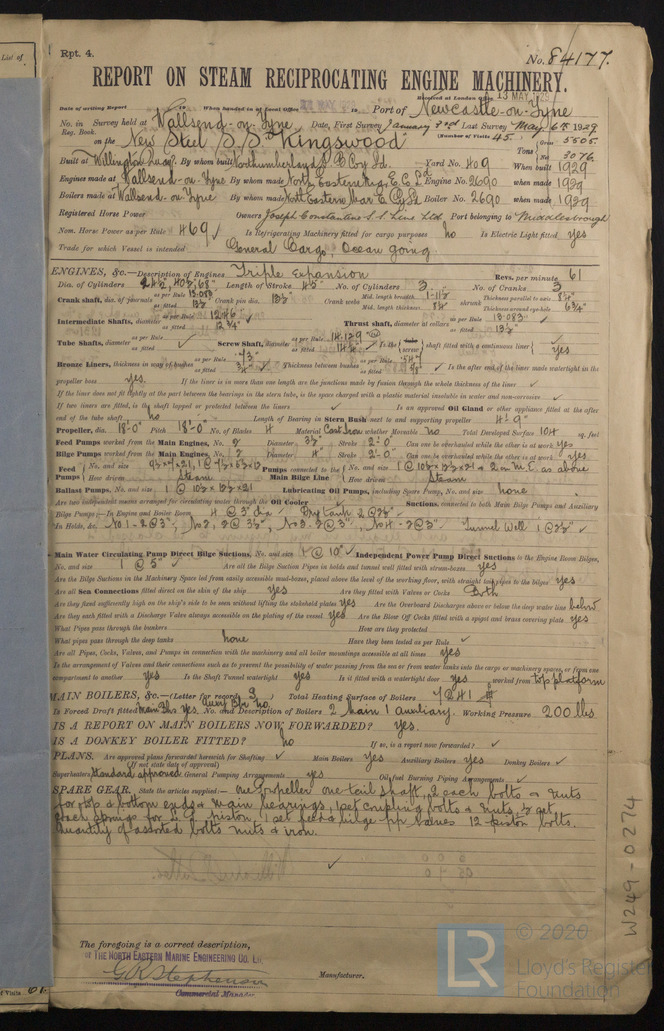 List of
Rpt. 4.
No. 84177.
REPORT ON STEAM RECIPROCATING ENGINE MACHINERY.
Received at London 13 MAY 1929
Date of writing Report When handed in at Local Office Port of Newcastle-on-Tyne
No. in Survey held at Wallsend-on-Tyne Date, First Survey January 3rd Last Survey May 6th 1929
Reg. Book. (Number of Visits 45)
on the New Steel S/S "Kingswood" Tons Gross 5505 Net 3076
Built at Willington Quay By whom built Northumberland S.B. Coy Ld. Yard No. 409 When built 1929
Engines made at Wallsend-on-Tyne By whom made North Eastern Mar. E. C. Ld Engine No. 2690 when made 1929
Boilers made at Wallsend-on-Tyne By whom made North Eastern Mar. E. Cy Ld Boiler No. 2690 when made 1929
Registered Horse Power Owners Joseph Constantine S.S. Line Ltd Port belonging to Middlesbrough
Nom. Horse Power as per Rule 469 Is Refrigerating Machinery fitted for cargo purposes no Is Electric Light fitted yes
Trade for which Vessel is intended General Cargo, Ocean going
ENGINES, &c.—Description of Engines Triple Expansion Revs. per minute 61
Dia. of Cylinders Length of Stroke 45" No. of Cylinders 3 No. of Cranks 3
Crank shaft, dia. of journals as per Rule 13.083" as fitted 13½ Crank pin dia. 13½" Crank webs Mid. length breadth 1-11½ Mid. length thickness 8¼" shrunk Thickness parallel to axis 8¼" Thickness around eyehole 6¾"
Intermediate Shafts, diameter as per Rule 12.46 as fitted 12¾" Thrust shaft, diameter at collars as per Rule 13.083" as fitted 13½"
Tube Shafts, diameter as per Rule as fitted Screw Shaft, diameter as per Rule 14.129" as fitted Is the tube screw shaft fitted with a continuous liner yes
Bronze Liners, thickness in way of bushes as per Rule as fitted Thickness between bushes as per Rule as fitted Is the after end of the liner made watertight in the
propeller boss yes. If the liner is in more than one length are the joints made by fusion through the whole thickness of the liner
If the liner does not fit tightly at the part between the bearings in the stern tube, is the space charged with a plastic material insoluble in water and non-corrosive
If two liners are fitted, is the shaft lapped or protected between the liners Is an approved Oil Gland or other appliance fitted at the after
end of the tube shaft no Length of Bearing in Stern Bush next to and supporting propeller 4'-9"
Propeller, dia. 18'-0" Pitch 18'-0" No. of Blades 4 Material Cast Iron whether Moveable no Total Developed Surface 104 sq. feet
Feed Pumps worked from the Main Engines, No. 2 Diameter 3½" Stroke 2'-0" Can one be overhauled while the other is at work yes
Bilge Pumps worked from the Main Engines, No. 2 Diameter 4" Stroke 2'-0" Can one be overhauled while the other is at work yes
Feed Pumps No. and size How driven Steam Pumps connected to the Main Bilge Line No. and size How driven Steam
Ballast Pumps, No. and size Lubricating Oil Pumps, including Spare Pump, No. and size none
Are two independent means arranged for circulating water through the Oil Cooler Suctions, connected to both Main Bilge Pumps and Auxiliary
Bilge Pumps;—In Engine and Boiler Room 4 @ 3" dia
In Holds, &c. No 1 - 2 @ 3", No 2, 2 @ 3½", No 3 - 2 @ 3", No 4 - 2 @ 3" Tunnel Well 1 @ 2½"
Main Water Circulating Pump Direct Bilge Suctions, No. and size 1 @ 10" Independent Power Pump Direct Suctions to the Engine Room Bilges,
No. and size 1 @ 5" Are all the Bilge Suction Pipes in holds and tunnel well fitted with strum-boxes yes
Are the Bilge Suctions in the Machinery Space led from easily accessible mud-boxes, placed above the level of the working floor, with straight tail pipes to the bilges yes
Are all Sea Connections fitted direct on the skin of the ship yes Are they fitted with Valves or Cocks Both
Are they fixed sufficiently high on the ship's side to be seen without lifting the stokehold plates yes Are the Overboard Discharges above or below the deep water line below
Are they each fitted with a Discharge Valve always accessible on the plating of the vessel yes Are the Blow Off Cocks fitted with a spigot and brass covering plate yes
What Pipes pass through the bunkers How are they protected
What pipes pass through the deep tanks none Have they been tested as per Rule
Are all Pipes, Cocks, Valves, and Pumps in connection with the machinery and all boiler mountings accessible at all times yes
Is the arrangement of Valves and their connections such as to prevent the possibility of water passing from the sea or from water tanks into the cargo or machinery spaces, or from one
compartment to another yes Is the Shaft Tunnel watertight yes Is it fitted with a watertight door yes worked from top platform
MAIN BOILERS, &c.—(Letter for record S) Total Heating Surface of Boilers 7241
Is Forced Draft fitted Main Blrs Yes Auxy Blr no No. and Description of Boilers 2 Main 1 auxiliary. Working Pressure 200 lbs.
IS A REPORT ON MAIN BOILERS NOW FORWARDED? yes.
IS A DONKEY BOILER FITTED? no If so, is a report now forwarded?
PLANS. Are approved plans forwarded herewith for Shafting Main Boilers yes Auxiliary Boilers yes Donkey Boilers
(If not state date of approval)
Superheaters Standard approved General Pumping Arrangements yes Oil fuel Burning Piping Arrangements
SPARE GEAR. State the articles supplied:— one propeller one tail shaft, 2 each bolts & nuts
for top & bottom ends & main bearings, 1 set coupling bolts & nuts,
each springs for piston, 1 set feed & bilge pp valves 12 piston bolts.
Quantity of assorted bolts nuts & iron.
The foregoing is a correct description,
THE NORTH EASTERN MARINE ENGINEERING Co. Ld.
G.R. Stephenson Manufacturer.
Commercial Manager
W249-0274
LR
© 2020
Lloyd's Register
Foundation